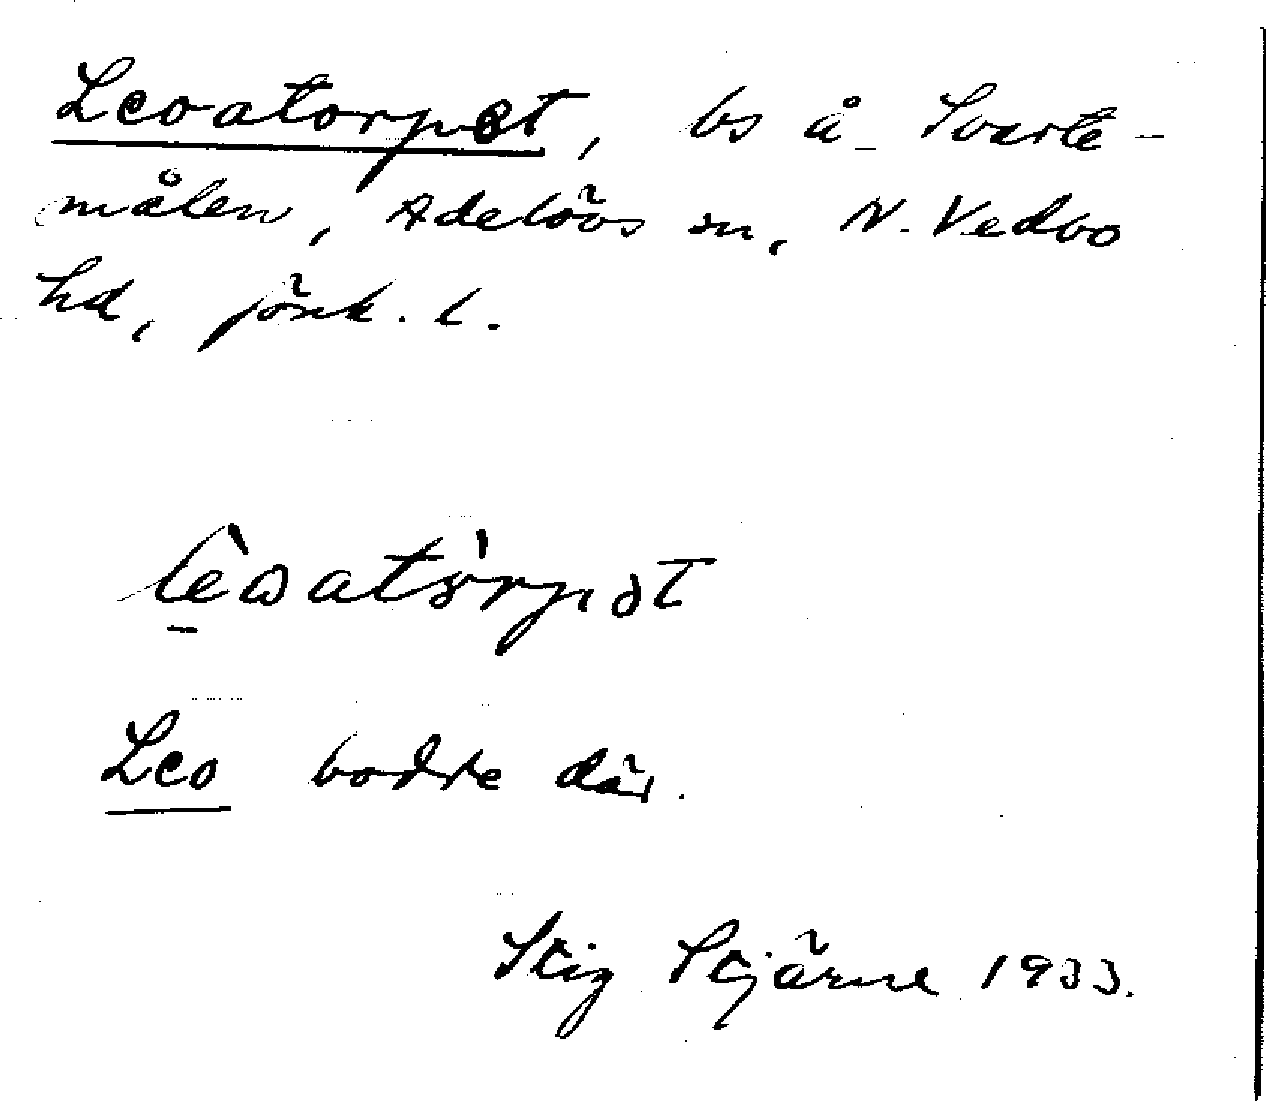 Leoatorpet, bs å Svarte-
målen, Adelövs sn, N. Vedbo
hd, jönk. l.
Leo bodde där.
Stig Stjärne 1933.